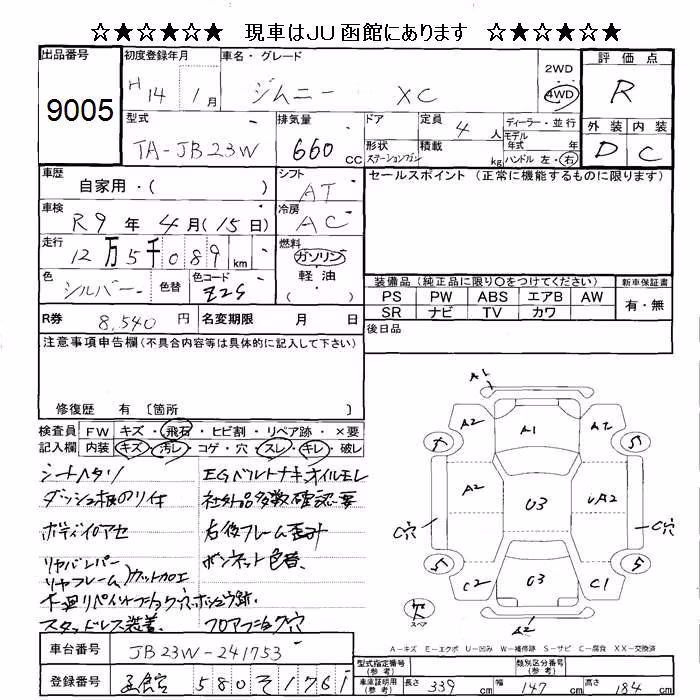 ☆★☆★☆★ 現車はJU函館にあります ☆★☆★☆★
出品番号 9005
初度登録年月 H14 1月
車名・グレード ジムニー XC
2WD 4WD
評価点 R
外装 D 内装 C
型式 TA-JB23W
排気量 660cc
ドア
形状 ステーションワゴン
定員 4人
積載 kg
ディーラー・並行
モデル年式 年
ハンドル 左・右
車歴 自家用・( )
シフト AT
セールスポイント (正常に機能するものに限ります)
車検 R9年4月(15日)
冷房 AC
走行 12万5千089km
燃料 ガソリン 軽油 ( )
色 シルバー 色替
色コード Z2S
装備品 (純正品に限り○をつけてください)
新車保証書
PS PW ABS エアB AW
有・無
SR ナビ TV カワ
R券 8,540円 名変期限 月 日
後日品
注意事項申告欄 (不具合内容等は具体的に記入して下さい)
修復歴 有 〔箇所
検査員記入欄
FW キズ・飛石・ヒビ割・リペア跡・×要
内装 キズ・汚レ・コゲ・穴・スレ・キレ・破レ
シートヘタリ
EGベルトナキ、オイルモレ
ダッシュ板のり付
社外品多数確認要
ボディイロアセ
右後フレーム歪み
リヤバンパー
リヤフレーム)カットカエ
ボンネット色替
下廻リペイントフショク穴、ホシュウ跡、
スタッドレス装着、
フロアフショク穴
A1
A2 A1 A2
A2 U3 UA2
C穴 C穴
C2 U3 C1
5 5
穴 スペア
A2
A−キズ E−エクボ U−凹み W−補修跡 S−サビ C−腐食 XX−交換済
車台番号 JB23W-241753
登録番号 函館 580 そ 1761
型式指定番号(参考)
類別区分番号(参考)
車庫証明用(参考) 長さ 339cm 幅 147cm 高さ 184cm